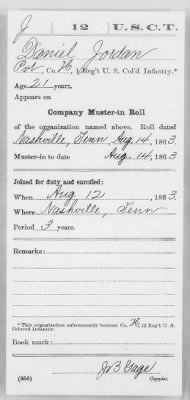 J 12 U.S.C.T.
Daniel Jordan
Pvt, Co. H, 1 Reg't U. S. Col'd Infantry.*
Age 21 years.
Appears on
Company Muster-in Roll
of the organization named above. Roll dated
Nashville, Tenn, Aug. 14, 1863
Muster-in to date Aug. 14, 1863
Joined for duty and enrolled:
When Aug 12, 1863.
Where Nashville, Tenn
Period 3 years.
Remarks:
* This organization subsequently became Co. H, 12 Reg't U. S.
Colored Infantry.
Book mark:
J B Gage
(356) Copyist.